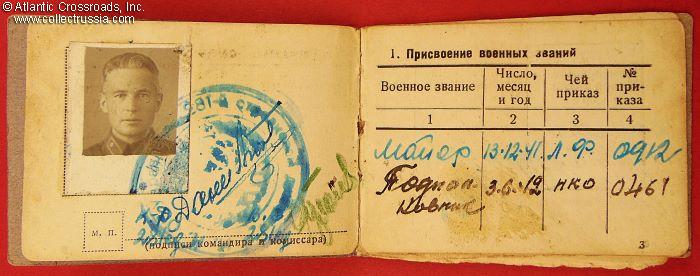 © Atlantic Crossroads, Inc.
www.collectrussia.com
М. П.
(подписи командира и комиссара)
1. Присвоение военных званий
Военное звание
Число, месяц и год
Чей приказ
№ при-каза
1 2 3 4
Майор 13.12.41 Л.Ф. 0912
Подпол
ковник 3.6.42 НКО 0461
3